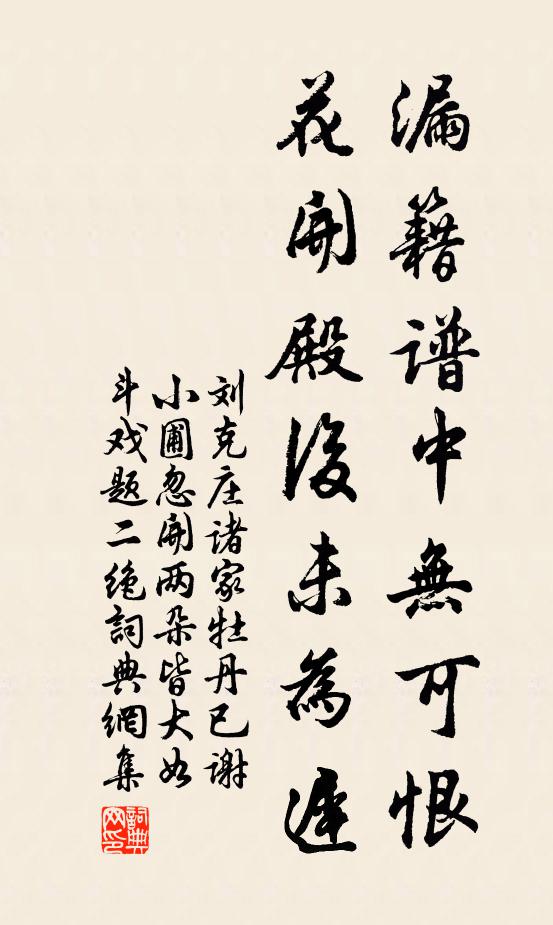 漏籍譜中無可恨
花開殿後未為遲
刘克庄诸家牡丹已谢
小圃忽開两朵皆大如
斗戏题二绝詞典網集
詞典網印